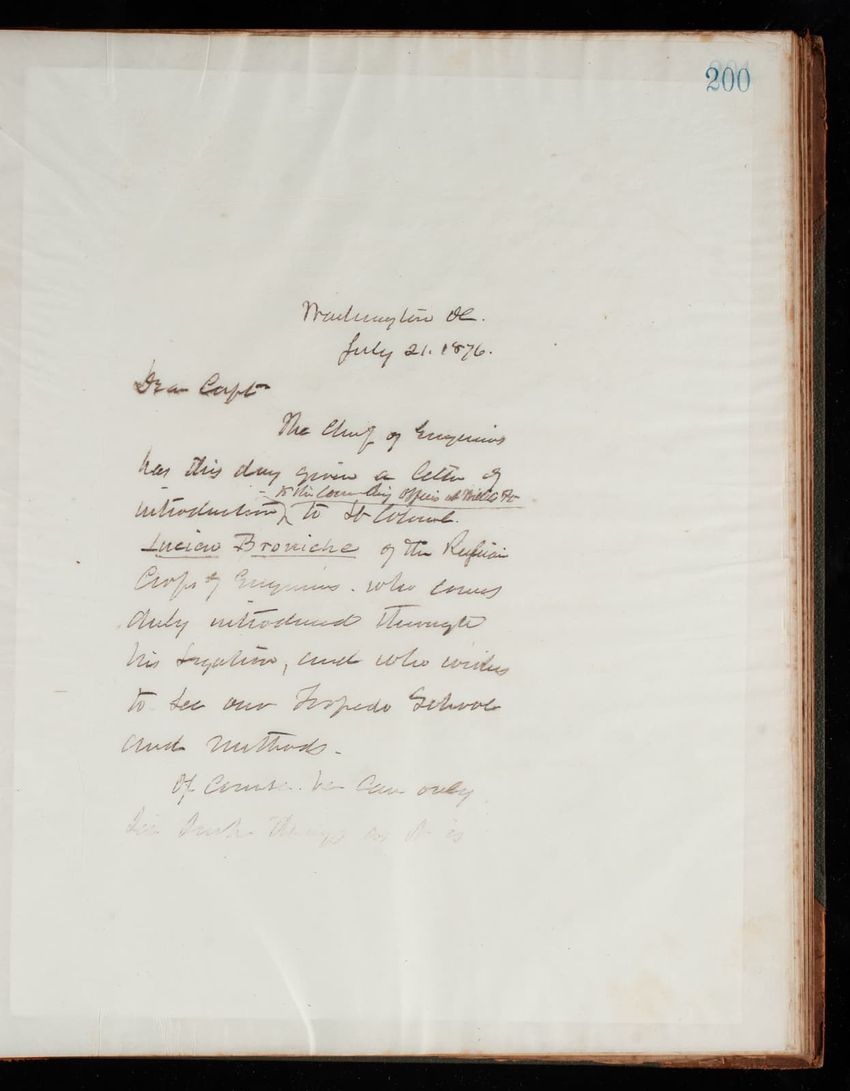 200
Washington DC.
July 21. 1876.
Dear Capt
The Chief of Engineers
has this day given a letter of
to the Commdg officer at Willets Pt
introduction to Lt Colonel
Lucian Broniche of the Russian
Corps of Engineers. who comes
duly introduced through
his Legation, and who wishes
to see our Torpedo School
and methods.
Of course. he can only
see such things as it is